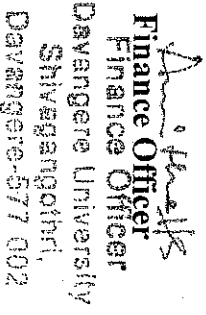 Finance Officer
Finance Officer
Davangere University
Shivagangothri,
Davangere-577 002